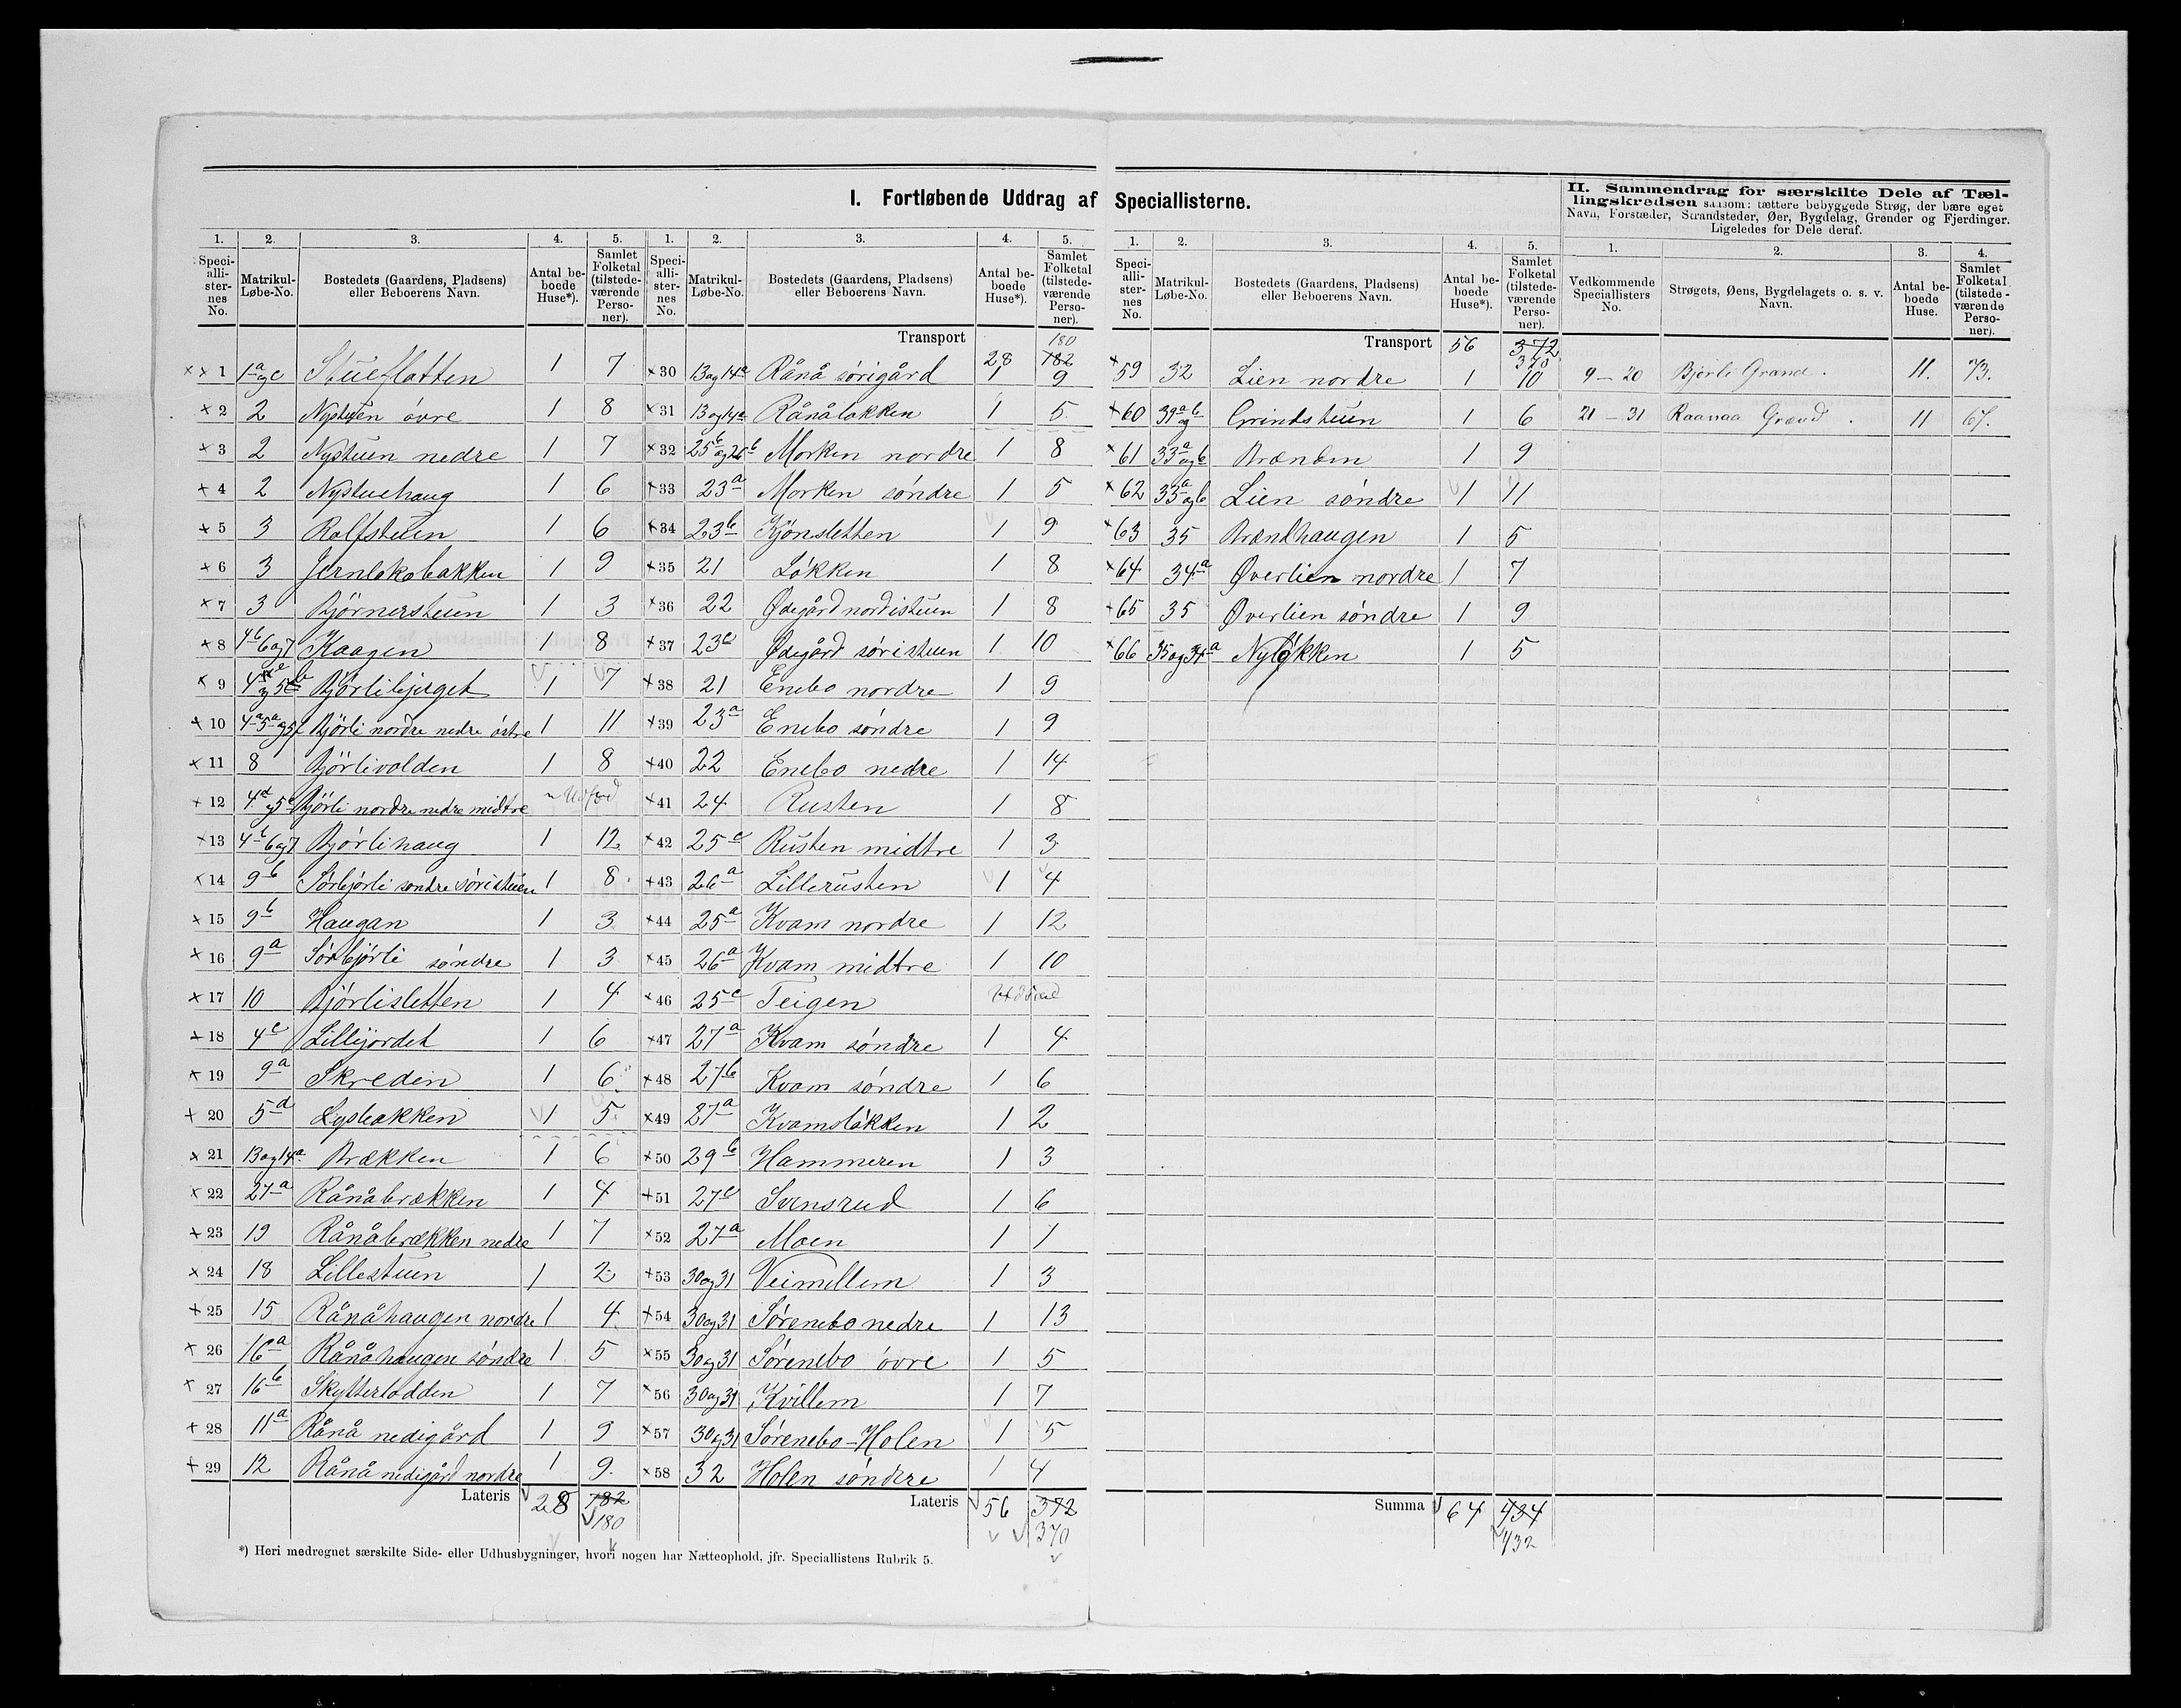 I. Fortløbende Uddrag af Speciallisterne.
1. 2. 3. 4. 5.
Speciallisternes No. Matrikul-Løbe-No. Bostedets (Gaardens, Pladsens) eller Beboerens Navn. Antal beboede Huse*). Samlet Folketal (tilstedeværende Personer).
1 1a og c Stueflotten 1 7
2 2 Nystuen övre 1 8
3 2 Nystuen nedre 1 7
4 2 Nystuehaug 1 6
5 3 Rolfstuen 1 6
6 3 Jernlokobakken 1 9
7 3 Björnerstuen 1 3
8 4b 6 og 7 Kaagen 1 8
9 Bjørlibjerget 1 7
10 4a 5a og 5f Bjørli nordre nedre østre 1 11
11 8 Bjørlivolden 1 8
12 4d og 5c Bjørli nordre nedre midtre
13 4b 6 og 7 Bjørlihaug 1 12
14 9b Sørbjørli søndre søristuen 1 8
15 9b Haugan 1 3
16 9a Sørbjörli söndre 1 3
17 10 Bjørlisletten 1 4
18 4c Lillejordet 1 6
19 9a Skreden 1 6
20 5d Lysbakken 1 5
21 13 og 14a Brækken 1 6
22 27a Rånåbrækken 1 4
23 19 Rånåbrækken nedre 1 7
24 18 Lillestuen 1 2
25 15 Rånåhaugen nordre 1 4
26 16a Rånåhaugen söndre 1 5
27 16b Skytterlodden 1 7
28 11a Rånå nedigård 1 9
29 12 Rånå nedigård nordre 1 9
Lateris 28 182
180
1. 2. 3. 4. 5.
Speciallisternes No. Matrikul-Løbe-No. Bostedets (Gaardens, Pladsens) eller Beboerens Navn. Antal beboede Huse*). Samlet Folketal (tilstedeværende Personer).
180
Transport 28 182
30 13 og 14a Rånå sørigård 1 9
31 13 og 14a Rånåløkken 1 5
32 25b og 26b Morken nordre 1 8
33 23a Morken søndre 1 5
34 23b Kjönsletten 1 9
35 21 Løkken 1 8
36 22 Ødegård nordistuen 1 8
37 23c Ødegård søristuen 1 10
38 21 Enebo nordre 1 9
39 23a Enebo søndre 1 9
40 22 Enebo nedre 1 14
41 24 Rusten 1 8
42 25c Rusten midtre 1 3
43 26a Lillerusten 1 4
44 25a Kvam nordre 1 12
45 26a Kvam midtre 1 10
46 25c Teigen
47 27a Kvam søndre 1 4
48 27b Kvam søndre 1 6
49 27a Kvamsløkken 1 2
50 29b Hammeren 1 3
51 27c Svensrud 1 6
52 27a Moen 1 1
53 30 og 31 Veimellem 1 3
54 30 og 31 Sørenebo nedre 1 13
55 30 og 31 Sørenebo øvre 1 5
56 30 og 31 Kvillem 1 7
57 30 og 31 Sørenebo-Holen 1 5
58 32 Holen søndre 1 4
Lateris 56 372
370
*) Heri medregnet særskilte Side- eller Udhusbygninger, hvori nogen har Natteophold, jfr. Speciallistens Rubrik 5.
1. 2. 3. 4. 5.
Speciallisternes No. Matrikul-Løbe-No. Bostedets (Gaardens, Pladsens) eller Beboerens Navn. Antal beboede Huse*). Samlet Folketal (tilstedeværende Personer).
Transport 56 372
370
59 32 Lien nordre 1 10
60 39a og b Grindstuen 1 6
61 33a og b Brænden 1 9
62 33a og b Lien søndre 1 11
63 35 Brændhaugen 1 5
64 34a Øverlien nordre 1 7
65 35 Øverlien søndre 1 9
66 35 og 34a Nyløkken 1 5
Summa 64 434
432
II. Sammendrag for særskilte Dele af Tællingskredsen saasom: tættere bebyggede Strøg, der bære eget Navn, Forstæder, Strandsteder, Øer, Bygdelag, Grender og Fjerdinger. Ligeledes for Dele deraf.
1. 2. 3. 4.
Vedkommende Speciallisters No. Strøgets, Øens, Bygdelagets o. s. v. Navn. Antal beboede Huse. Samlet Folketal (tilstedeværende Personer).
9 - 20 Bjørli Grænd. 11. 73.
21 - 31 Raanaa Grænd. 11 67.